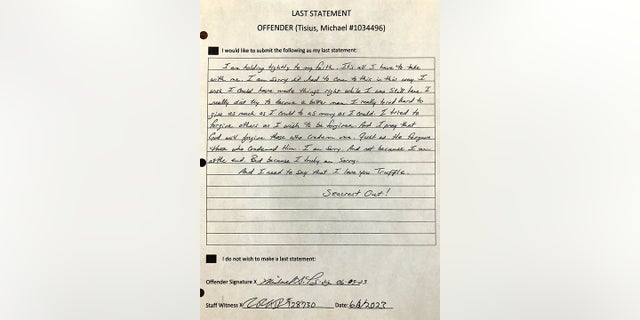 LAST STATEMENT
OFFENDER (Tisius, Michael #1034496)
I would like to submit the following as my last statement:
I am holding tightly to my faith. It's all I have to take
with me. I am sorry it had to come to this in this way. I
wish I could have made things right while I was still here. I
really did try to become a better man. I really tried hard to
give as much as I could to as many as I could. I tried to
forgive others as I wish to be forgiven. And I pray that
God will forgive those who condemn me. Just as He forgave
those who condemned Him. I am sorry. And not because I am
at the end. But because I truly am sorry.
And I need to say that I love you Truffle.
Seacrest Out!
I do not wish to make a last statement:
Offender Signature X
Staff Witness X Date: 2023